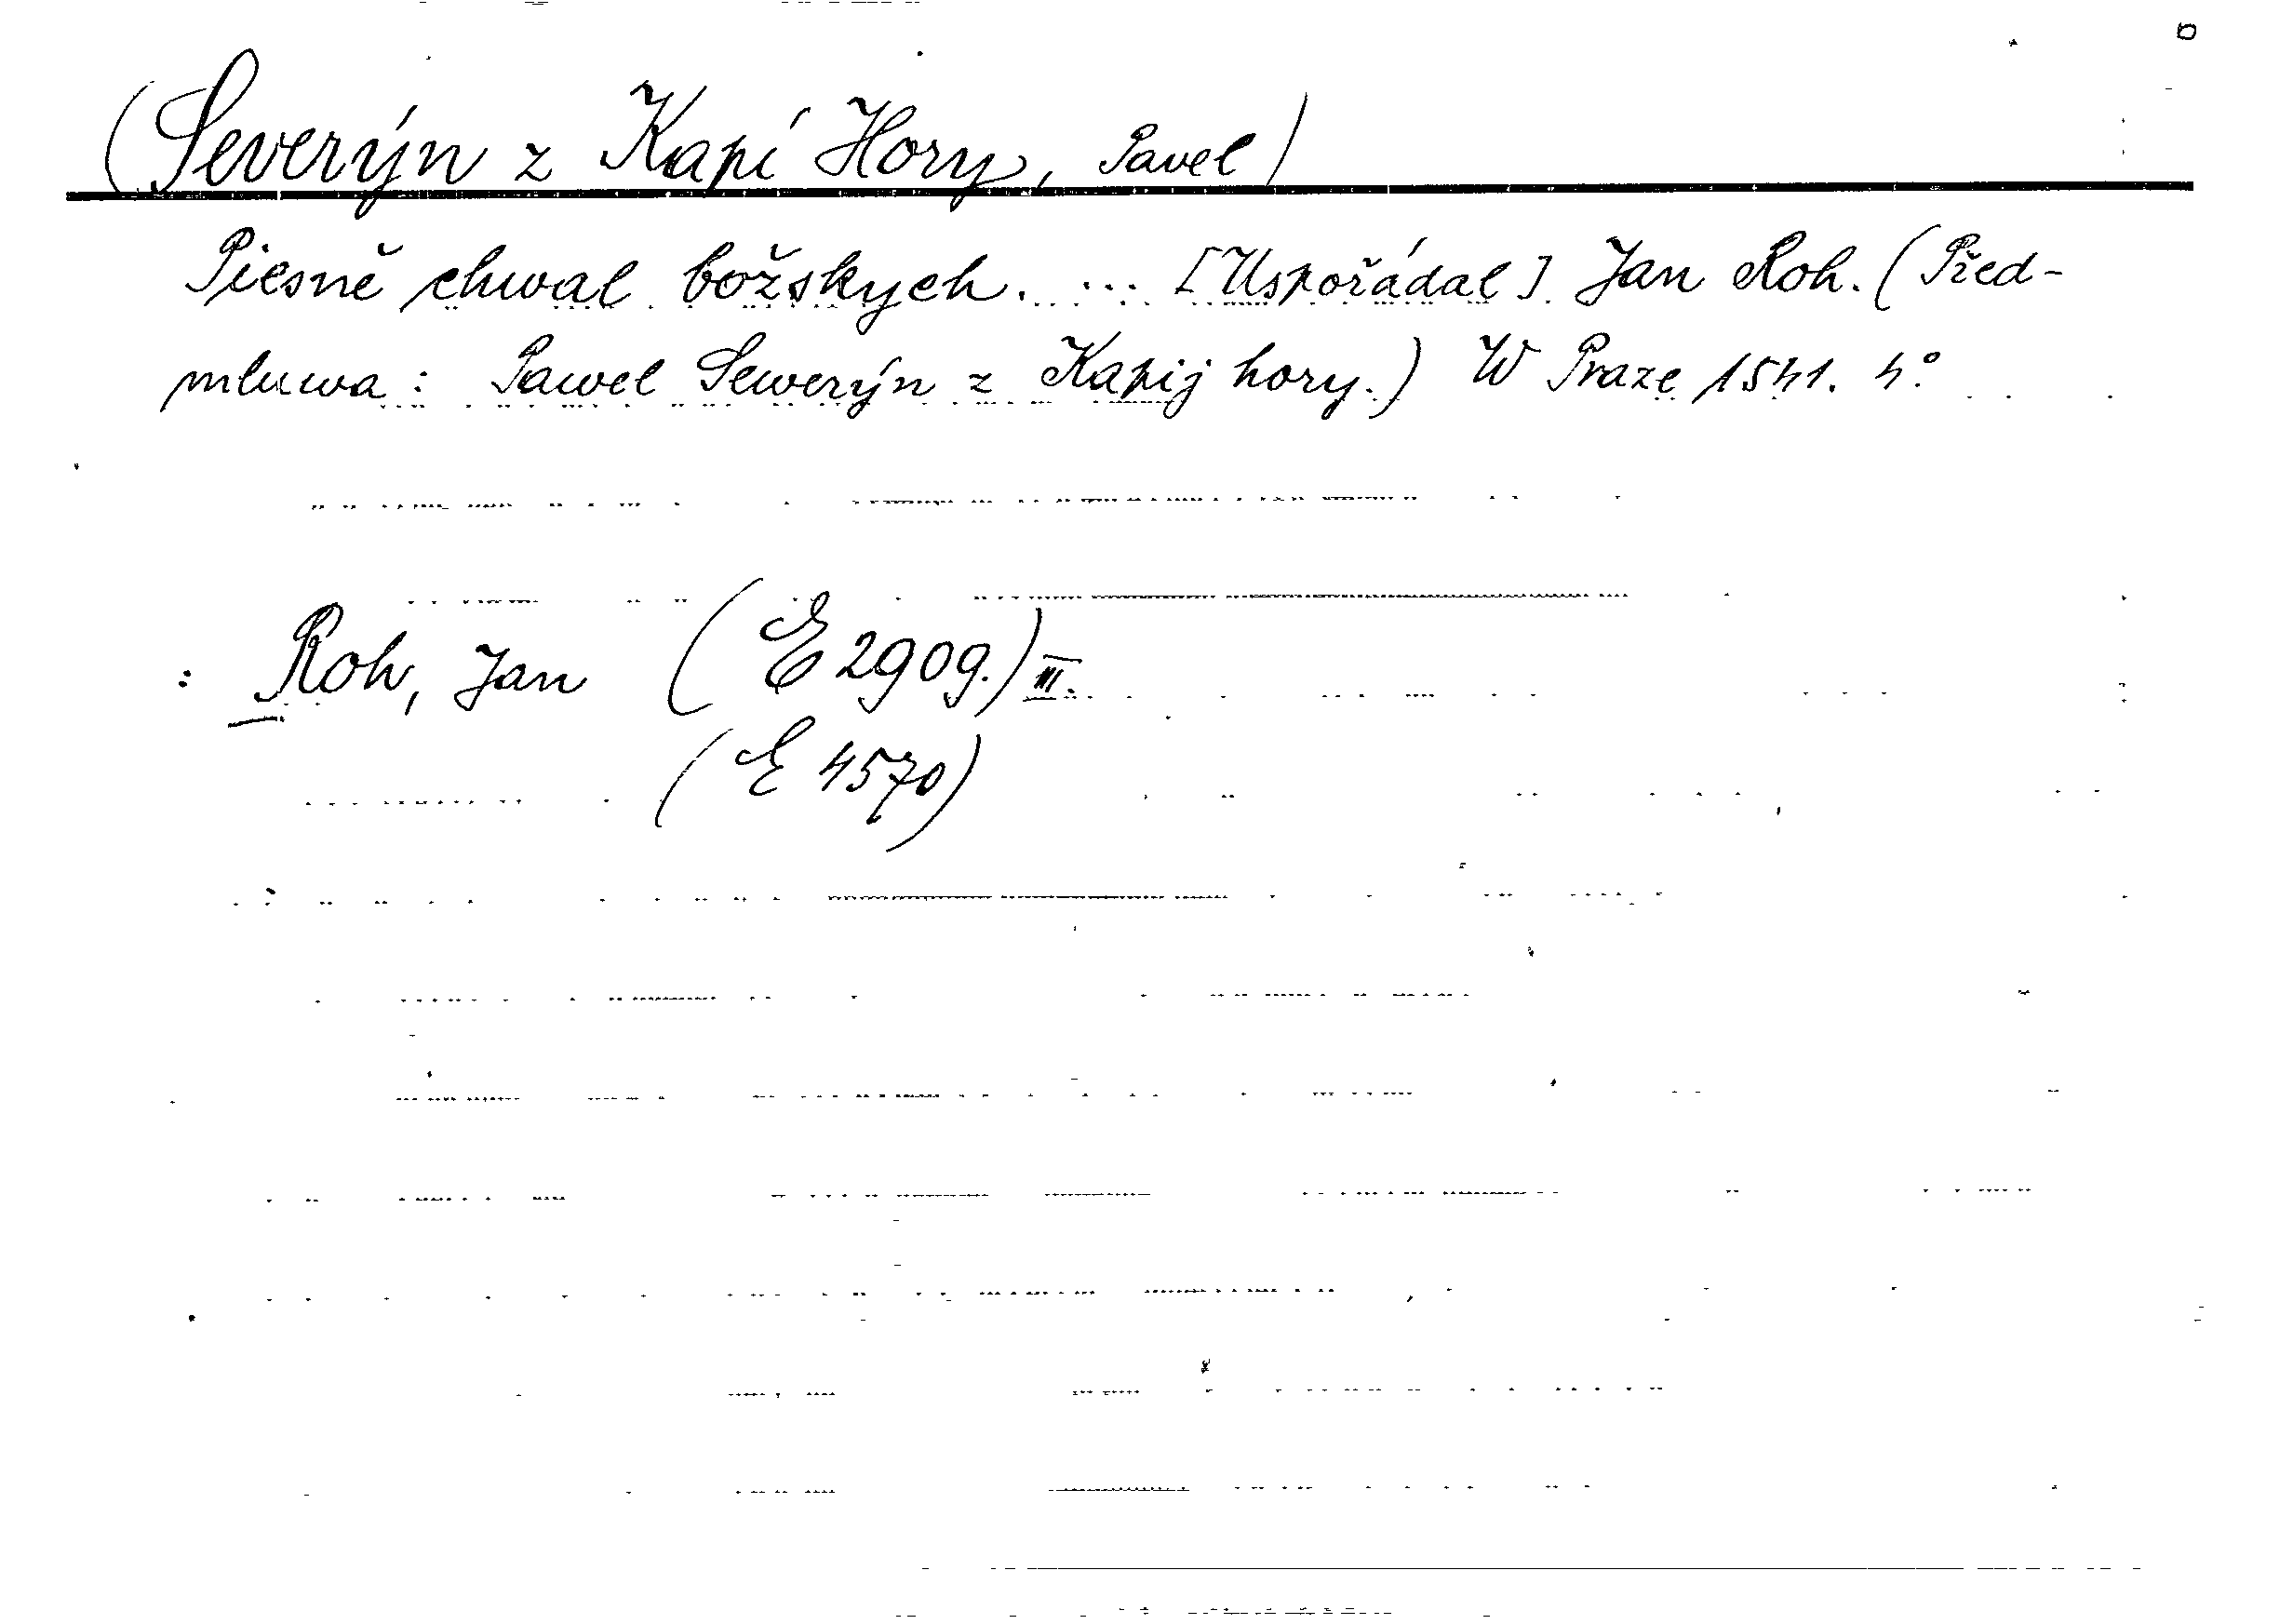 (Severýn z Kapí Hory, Pavel)
Piesně chwal božskych. ... [Uspořádal] Jan Roh. (Před-
mluwa: Pawel Sewerýn z Kapij hory.) W Praze 1541. 4°
: Roh, Jan (E 2909.) III.
(E 4570)